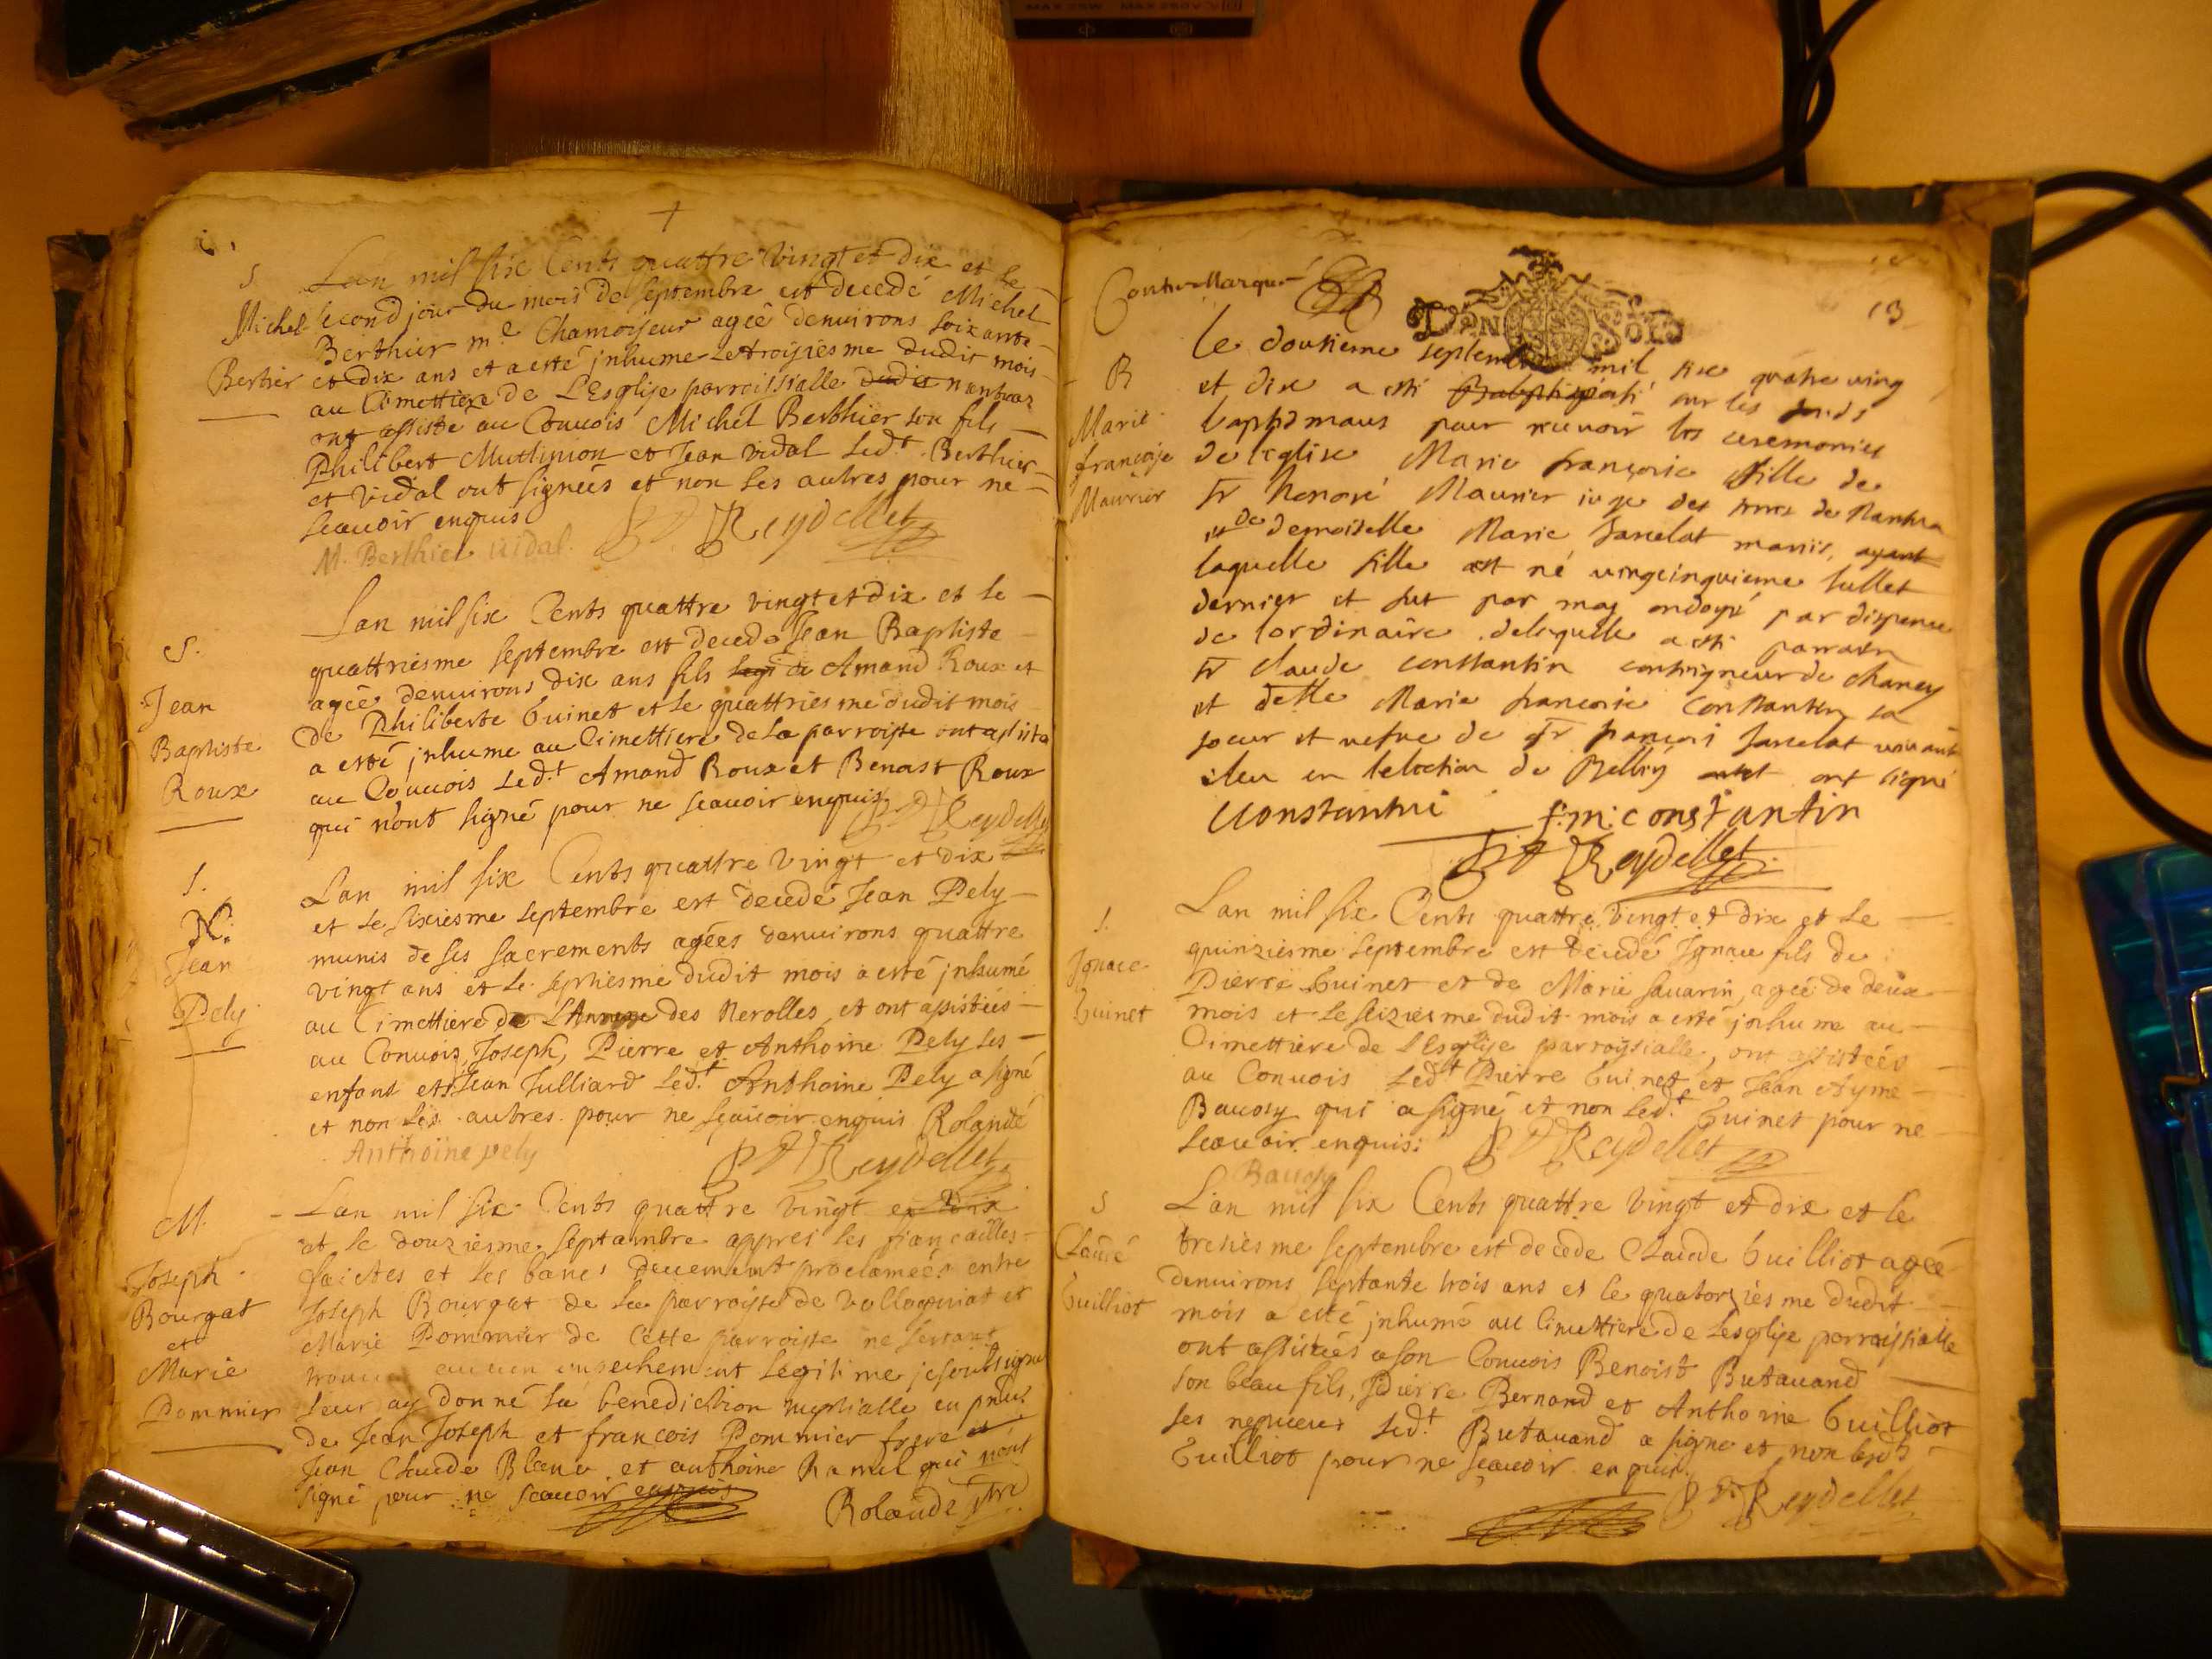 S.
Michel
Bertier
Lan mil six Cents quattre vingt et dix et le
second jour du mois de septembre est decedé Michel
Berthier me Chamoiseur agéé denuirons soixante
et dix ans et a esté jnhume le troisiesme dudit mois
au Cimettiere de L'Esglise parroissialle dudit nantuaz
ont assisté au Conuois Michel Berthier son fils
Philibert Mutinion et Jean vidal Ledt. Berthier
et vidal ont signéés et non les autres pour ne
scauoir enquis Reydellet
M. Berthier vidal.
S.
Jean
Baptiste
Roux
Lan mil six Cents quattre vingt et dix et le
quattriesme septembre est decedé Jean Baptiste
agéé denuirons dix ans fils de Amand Roux et
de Philiberte Guinet et le quattriesme dudit mois
a esté jnhume au Cimettiere de la parroisse ont assisté
au Conuois Ledt. Amand Roux et Benoist Roux
qui n'ont signé pour ne scauoir enquis Reydellet
S.
N.
Jean
Pely
Lan mil six Cents quattre vingt et dix
et le sixiesme septembre est decedé Jean Pely
munis de ses sacrements agéés denuirons quattre
vingt ans et le septiesme dudit mois a esté jnhumé
au Cimettiere de L'Annexe des Nerolles et ont assistéés
au Conuois Joseph, Pierre et Anthoine Pely ses
enfans et Jean Julliard Ledt. Anthoine Pely a signé
et non les autres pour ne sçauoir enquis Rolande
Anthoine pely Reydellet
M.
Joseph
Bourgat
et
Marie
Pommier
Lan mil six Cents quattre vingt et dix
et le douziesme septambre appres les fiancailles
faictes et les bancs deuement proclaméés entre
Joseph Bourgat de la parroisse de et
Marie Pommier de Cette parroisse ne s'estant
trouué aucun enpechement Legitime je soubsigné
leur ay donné la benediction nuptialle en pnce
de Jean Joseph et francois Pommier frere et
Jean Claude Blanc et anthoine Ramel qui n'ont
signé pour ne scauoir enquis
Rolande ptre
Contre Marqué
13
B
Marie
françoise
Maurier
le dousieme septembre mil sixe quatre ving
et dixe a esté sur les fonds
baptismaus pour receuoir les ceremonies
de l'eglise Marie françoise fille de
sr honoré Maurier iuge des terres de Nantua
et de demoiselle Marie Jancelot mariés,
laquelle fille est né vingcinquieme Iullet
dernier et fut par moy ondoyé par dispence
de lordinaire delaquelle a esté parrain
sr claude constantin conseigneur de chaney
et delle Marie françoise Constantin sa
soeur et vefve de sr françois Jancelot viuant
eleu en lelection de Belley ont signé
Constantin f:m:constantin
Reydellet
S.
Ignace
Guinet
Lan mil six Cents quattre vingt et dix et le
quinziesme septembre est decedé Ignace fils de
Pierre Guinet et de Marie Sauarin, agéé de deux
mois et le seiziesme dudit mois a esté jnhume au
Cimettiere de L'Esglise parroissialle, ont assistéés
au Conuois Ledt. Pierre Guinet et Jean Ayme
Baudy qui a signé et non Ledt. Guinet pour ne
scauoir enquis: Reydellet
S
Claude
Guilliot
L'an mil six Cents quattre vingt et dix et le
tresiesme septembre est decede Claude Guilliot agéé
denuirons septante trois ans et le quatorziesme dudit
mois a esté jnhumé au Cimettiere de Lesglise parroissialle
ont assistéés a son Conuois Benoist Butauand
son beau fils, Pierre Bernard et Anthoine Guilliot
ses nepueus Ledt. Butauand a signe et non lesdts
Guilliot pour ne sçauoir enquis.
Reydellet